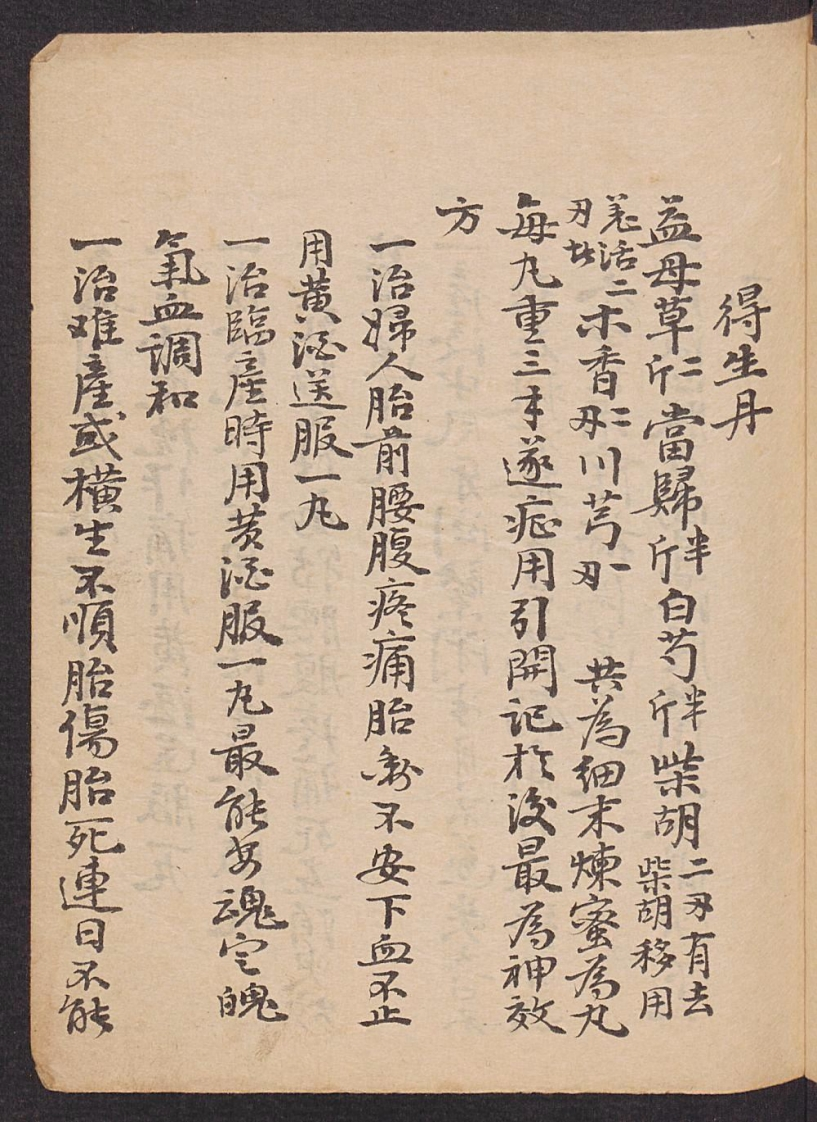 得生丹
益母草二斤當歸半斤白芍半斤柴胡二刄有去柴胡移用
羌活二刄木香二刄川芎一刄 共為細末煉蜜為丸
每丸重三遂症用引開記於後最為神效
方
一治婦人胎前腰腹疼痛胎動不安下血不止
用黄酒送服一丸
一治臨產時用黄酒服一丸最能安魂定魄
氣血調和
一治难產或橫生不順胎傷胎死連日不能